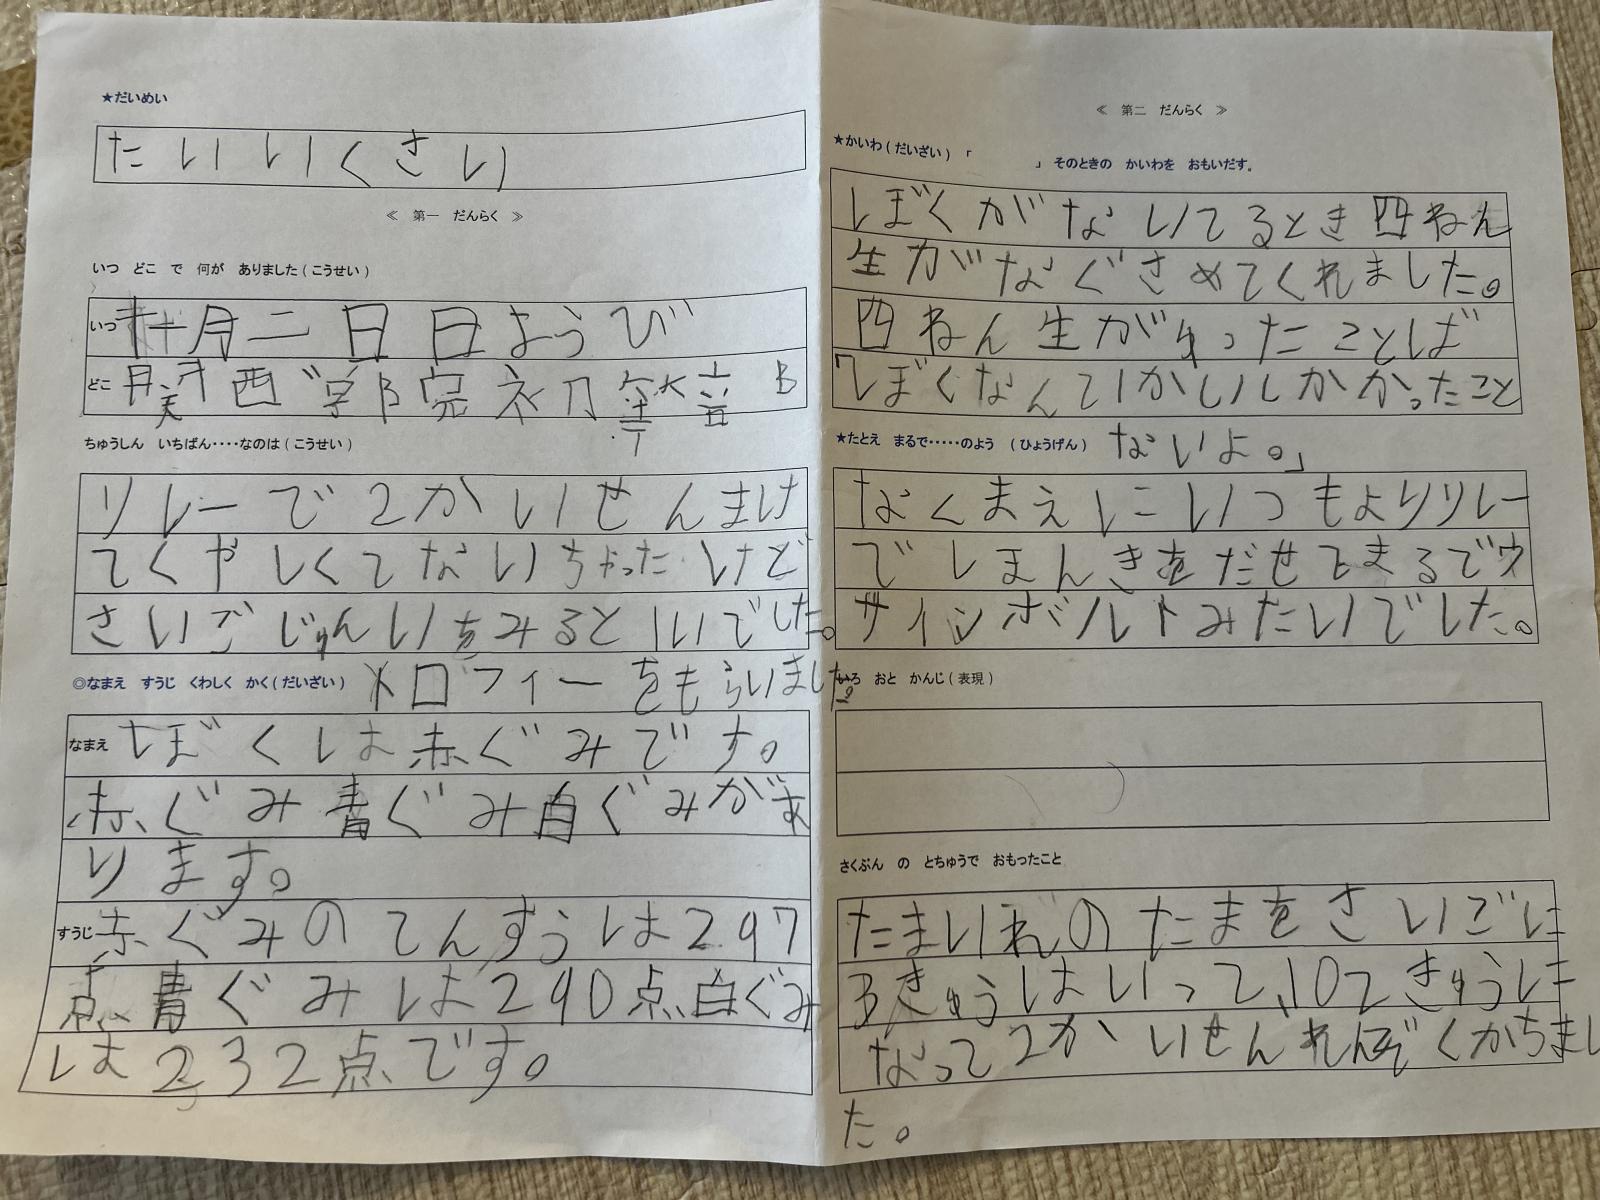 ★だいめい
たいいくさい
≪ 第一 だんらく ≫
いつ どこ で 何が ありました(こうせい)
いつ 十月二日日ようび
どこ 西
ちゅうしん いちばん‥‥なのは(こうせい)
リレーで2かいせんまけ
てくやしくてないちゃったけど
さいごじゅんいをみると1いでした。
◎なまえ すうじ くわしく かく(だいざい)
トロフィーをもらいました。
なまえ ぼくは赤ぐみです。
赤ぐみ青ぐみ白ぐみがあ
ります。
すうじ 赤ぐみのてんすうは297
点青ぐみは290点白ぐみ
は232点です。
≪ 第二 だんらく ≫
★かいわ(だいざい) 「 」 そのときの かいわを おもいだす。
ぼくがないてるとき四ねん
生がなぐさめてくれました。
四ねん生がゆったことば
「ぼくなんて1かいしかかったこと
ないよ。」
★たとえ まるで‥‥‥のよう (ひょうげん)
なくまえにいつもよりリレー
でしまんきをだせてまるでウ
サインボルトみたいでした。
いろ おと かんじ(表現)
さくぶん の とちゅうで おもったこと
たまいれのたまをさいごに
3きゅうはいって、102きゅうに
なって2かいせんれんぞくかちまし
た。